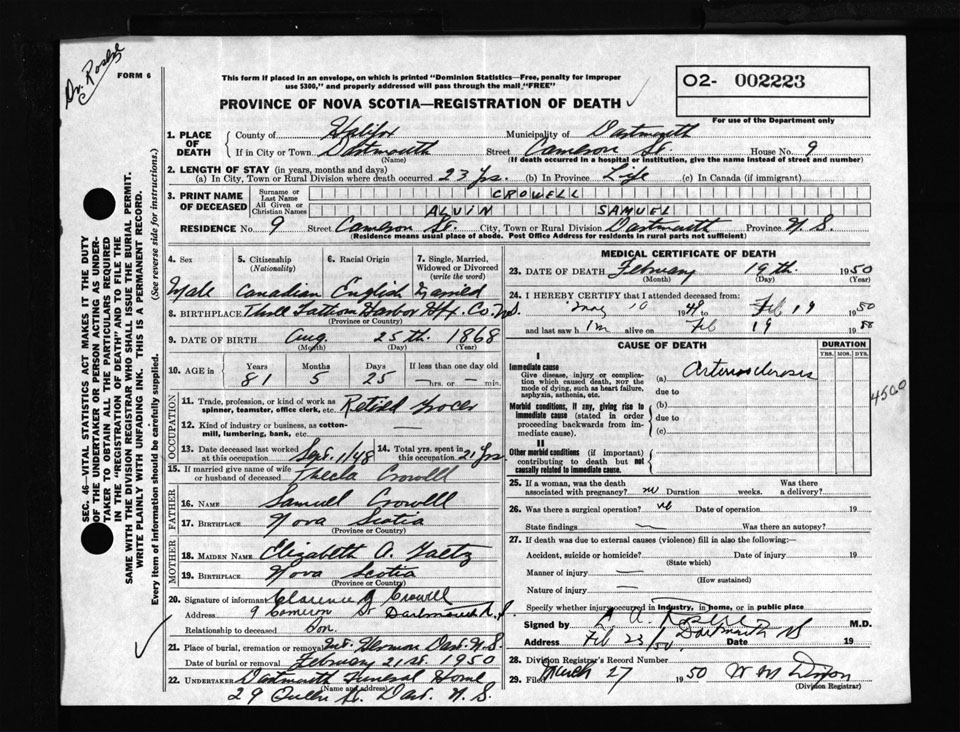 Dr. Rosere
FORM 6
This form if placed in an envelope, on which is printed "Dominion Statistics—Free, penalty for improper
use $300," and properly addressed will pass through the mail "FREE"
PROVINCE OF NOVA SCOTIA—REGISTRATION OF DEATH ✓
O2- 002223
For use of the Department only
1. PLACE OF DEATH
County of Halifax Municipality of Dartmouth
If in City or Town Dartmouth Street Cameron St. House No. 9
(Name) (If death occurred in a hospital or institution, give the name instead of street and number)
2. LENGTH OF STAY (in years, months and days)
(a) In City, Town or Rural Division where death occurred 23 yrs. (b) In Province Life (c) In Canada (if immigrant)
3. PRINT NAME OF DECEASED
Surname or Last Name CROWELL
All Given or Christian Names ALVIN SAMUEL
RESIDENCE No. 9 Street Cameron St. City, Town or Rural Division Dartmouth Province N.S.
(Residence means usual place of abode. Post Office Address for residents in rural parts not sufficient)
4. Sex 5. Citizenship (Nationality) 6. Racial Origin 7. Single, Married, Widowed or Divorced (write the word)
Male Canadian English Married
8. BIRTHPLACE Three Fathom Harbor Hfx. Co. N.S.
(Province or Country)
9. DATE OF BIRTH Aug. 25th. 1868
(Month) (Day) (Year)
10. AGE in Years Months Days If less than one day old
81 5 25 — hrs. or — min.
OCCUPATION
11. Trade, profession, or kind of work as spinner, teamster, office clerk, etc. Retired Grocer
12. Kind of industry or business, as cotton-mill, lumbering, bank, etc.
13. Date deceased last worked at this occupation Sept. 1/48 14. Total yrs. spent in this occupation 21 yrs
15. If married give name of wife or husband of deceased Thecla Crowell
FATHER
16. Name Samuel Crowell
17. Birthplace Nova Scotia
(Province or Country)
MOTHER
18. MAIDEN NAME Elizabeth A. Gaetz
19. BIRTHPLACE Nova Scotia
(Province or Country)
20. Signature of informant Clarence Crowell
Address 9 Cameron St Dartmouth N.S
Relationship to deceased Son.
21. Place of burial, cremation or removal Mt. Hermon Dart. N.S
Date of burial or removal February 21st. 1950
22. UNDERTAKER Dartmouth Funeral Home
(Name and address)
29 Queen St. Dart. N.S.
MEDICAL CERTIFICATE OF DEATH
23. DATE OF DEATH February 19th. 1950
(Month) (Day) (Year)
24. I HEREBY CERTIFY that I attended deceased from:
May 10 1949 to Feb 19 1950
and last saw h im alive on Feb 19 19
CAUSE OF DEATH DURATION
YRS. MOS. DYS.
I
Immediate cause
Give disease, injury or complication which caused death, NOT the mode of dying, such as heart failure, asphyxia, asthenia, etc.
(a) Arteriosclerosis
due to
4500
Morbid conditions, if any, giving rise to immediate cause (stated in order proceeding backwards from immediate cause).
(b)
due to
(c)
II
Other morbid conditions (if important) contributing to death but not causally related to immediate cause.
25. If a woman, was the death associated with pregnancy? no Duration weeks. Was there a delivery?
26. Was there a surgical operation? no Date of operation 19
State findings — Was there an autopsy?
27. If death was due to external causes (violence) fill in also the following:—
Accident, suicide or homicide? Date of injury 19
(State which)
Manner of injury —
(How sustained)
Nature of injury —
Specify whether injury occurred in industry, in home, or in public place
Signed by M.D.
Address Dartmouth NS Date Feb 23/50. 19
28. Division Registrar's Record Number
29. Filed March 27 1950 W M Dixon
(Division Registrar)
SEC. 46—VITAL STATISTICS ACT MAKES IT THE DUTY
OF THE UNDERTAKER OR PERSON ACTING AS UNDER-
TAKER TO OBTAIN ALL THE PARTICULARS REQUIRED
IN THE "REGISTRATION OF DEATH" AND TO FILE THE
SAME WITH THE DIVISION REGISTRAR WHO SHALL ISSUE THE BURIAL PERMIT.
WRITE PLAINLY WITH UNFADING INK. THIS IS A PERMANENT RECORD.
Every item of information should be carefully supplied. (See reverse side for instructions.)